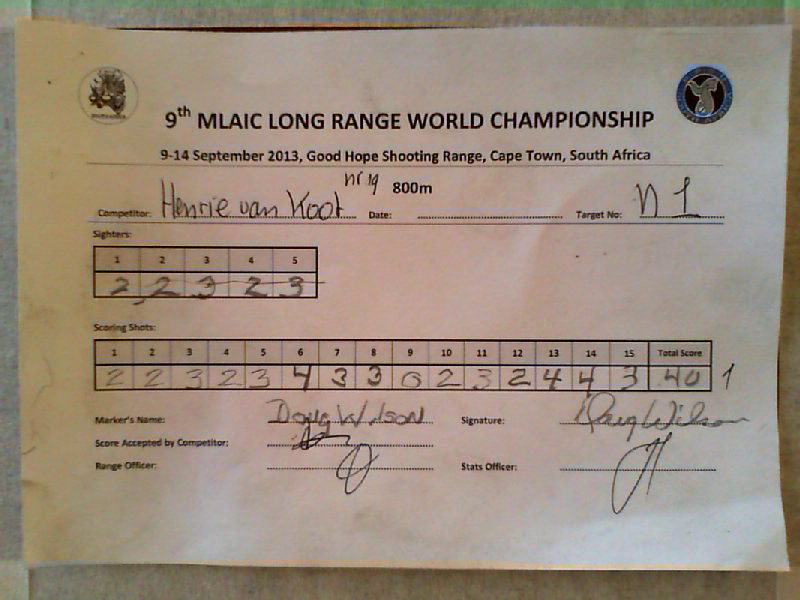 9th MLAIC LONG RANGE WORLD CHAMPIONSHIP
9-14 September 2013, Good Hope Shooting Range, Cape Town, South Africa
nr 19 800m
Competitor: Henrie van Koot Date: Target No: N 1
Sighters:
1 2 3 4 5
2 2 3 2 3
Scoring Shots:
1 2 3 4 5 6 7 8 9 10 11 12 13 14 15 Total Score
2 2 3 2 3 4 3 3 0 2 3 2 4 4 3 40 1
Marker's Name: Doug Wilson Signature: Doug Wilson
Score Accepted by Competitor:
Range Officer: Stats Officer: